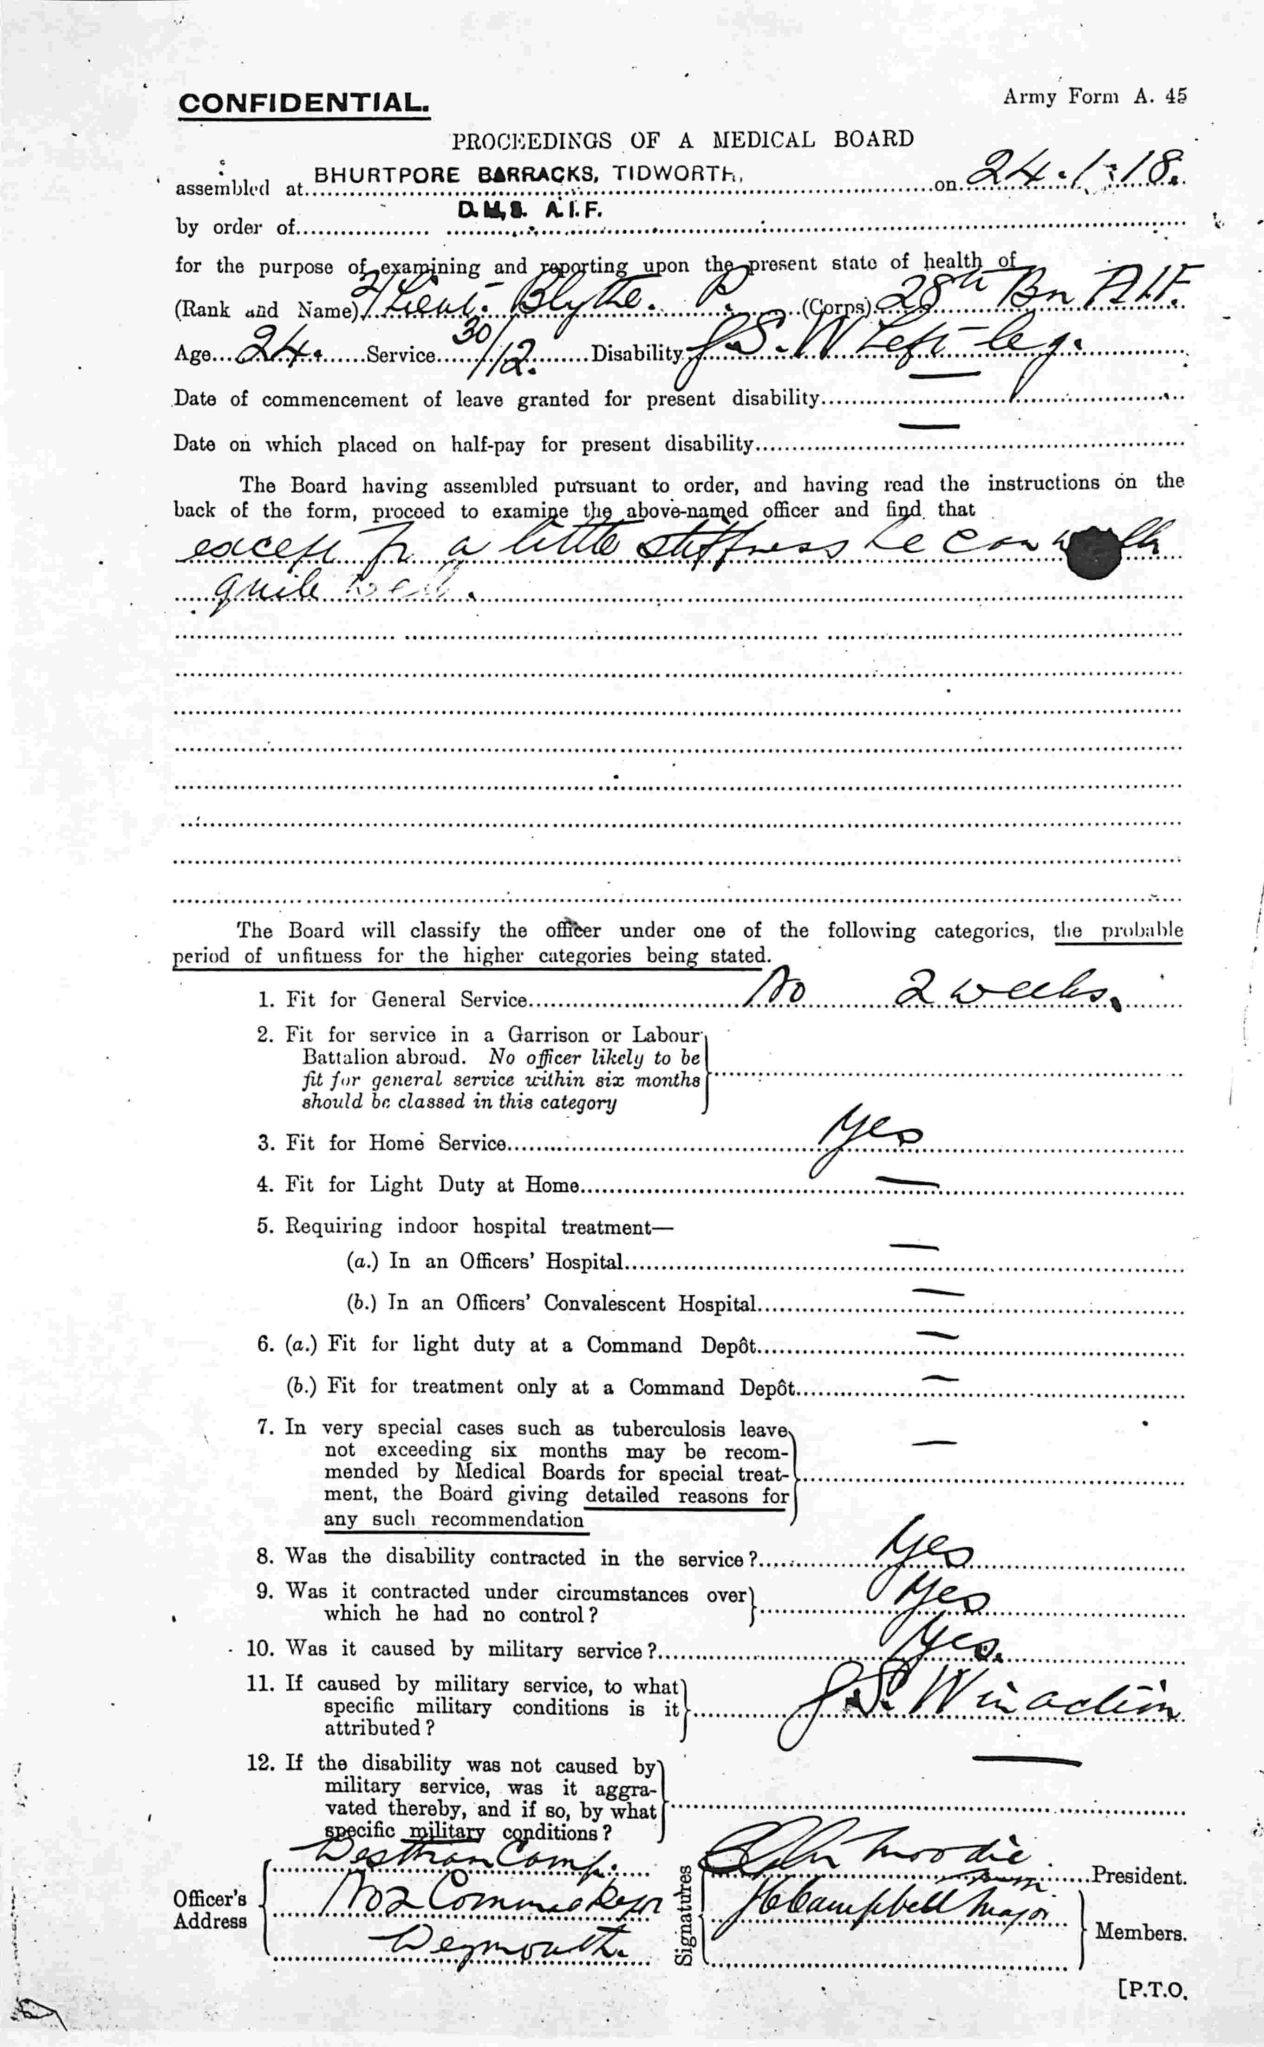 CONFIDENTIAL.
Army Form A. 45
PROCEEDINGS OF A MEDICAL BOARD
assembled at BHURTPORE BARRACKS, TIDWORTH, on 24.1.18.
by order of D.M.S. A.I.F.
for the purpose of examining and reporting upon the present state of health of
(Rank and Name) Lieut. Blythe. P. (Corps) 28th Bn A.I.F.
Age 24. Service 30/12. Disability G.S.W Left leg.
Date of commencement of leave granted for present disability —
Date on which placed on half-pay for present disability —
The Board having assembled pursuant to order, and having read the instructions on the
back of the form, proceed to examine the above-named officer and find that
except for a little stiffness he can walk
quite well.
The Board will classify the officer under one of the following categories, the probable
period of unfitness for the higher categories being stated.
1. Fit for General Service No 2 weeks.
2. Fit for service in a Garrison or Labour
Battalion abroad. No officer likely to be
fit for general service within six months
should be classed in this category
3. Fit for Home Service Yes
4. Fit for Light Duty at Home —
5. Requiring indoor hospital treatment—
(a.) In an Officers' Hospital —
(b.) In an Officers' Convalescent Hospital —
6. (a.) Fit for light duty at a Command Depôt —
(b.) Fit for treatment only at a Command Depôt —
7. In very special cases such as tuberculosis leave
not exceeding six months may be recom-
mended by Medical Boards for special treat- —
ment, the Board giving detailed reasons for
any such recommendation
8. Was the disability contracted in the service? Yes
9. Was it contracted under circumstances over
which he had no control? Yes
10. Was it caused by military service? Yes.
11. If caused by military service, to what
specific military conditions is it
attributed? G.S.W in action
12. If the disability was not caused by
military service, was it aggra-
vated thereby, and if so, by what
specific military conditions? —
Officer's Address
Camp.
No 2 Command Depot
Weymouth.
Signatures
Moodie. President.
Campbell Major Members.
[P.T.O.